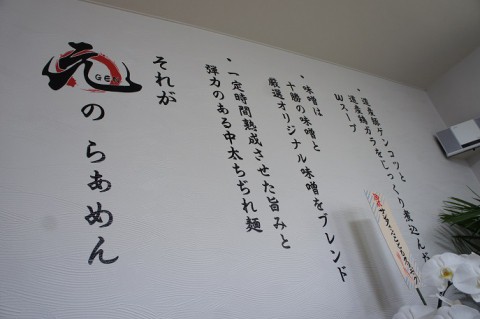 ・道産豚ゲンコツと
道産鶏ガラをじっくり煮込んだ
Wスープ
・味噌は
十勝の味噌と
厳選オリジナル味噌をブレンド
・一定時間熟成させた旨みと
弾力のある中太ちぢれ麺
それが
元 GEN
のらぁめん